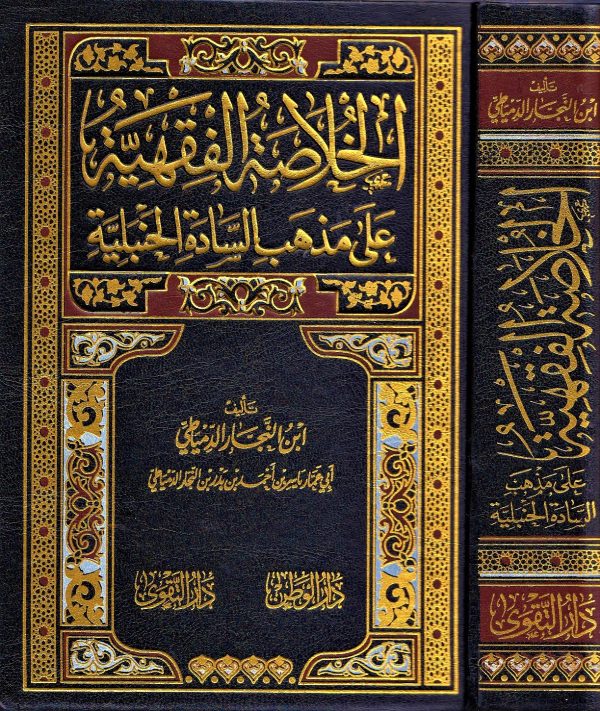 الخُلاصَةُ الفِقْهِيَّةُ
عَلَى مَذْهَبِ السَّادَةِ الحَنْبَلِيَّةِ
تَأليف
ابْنُ النَّجَّارِ الدِّمْيَاطِيِّ
أبي عمار ياسر بن أحمد بن بدر بن النجار الدمياطي
دَارُ الوَطَنِ
دَارُ التَّقْوَى
تَأليف
ابْنُ النَّجَّارِ الدِّمْيَاطِيِّ
الخُلاصَةُ الفِقْهِيَّةُ
عَلَى مَذْهَبِ
السَّادَةِ الحَنْبَلِيَّةِ
دَارُ التَّقْوَى